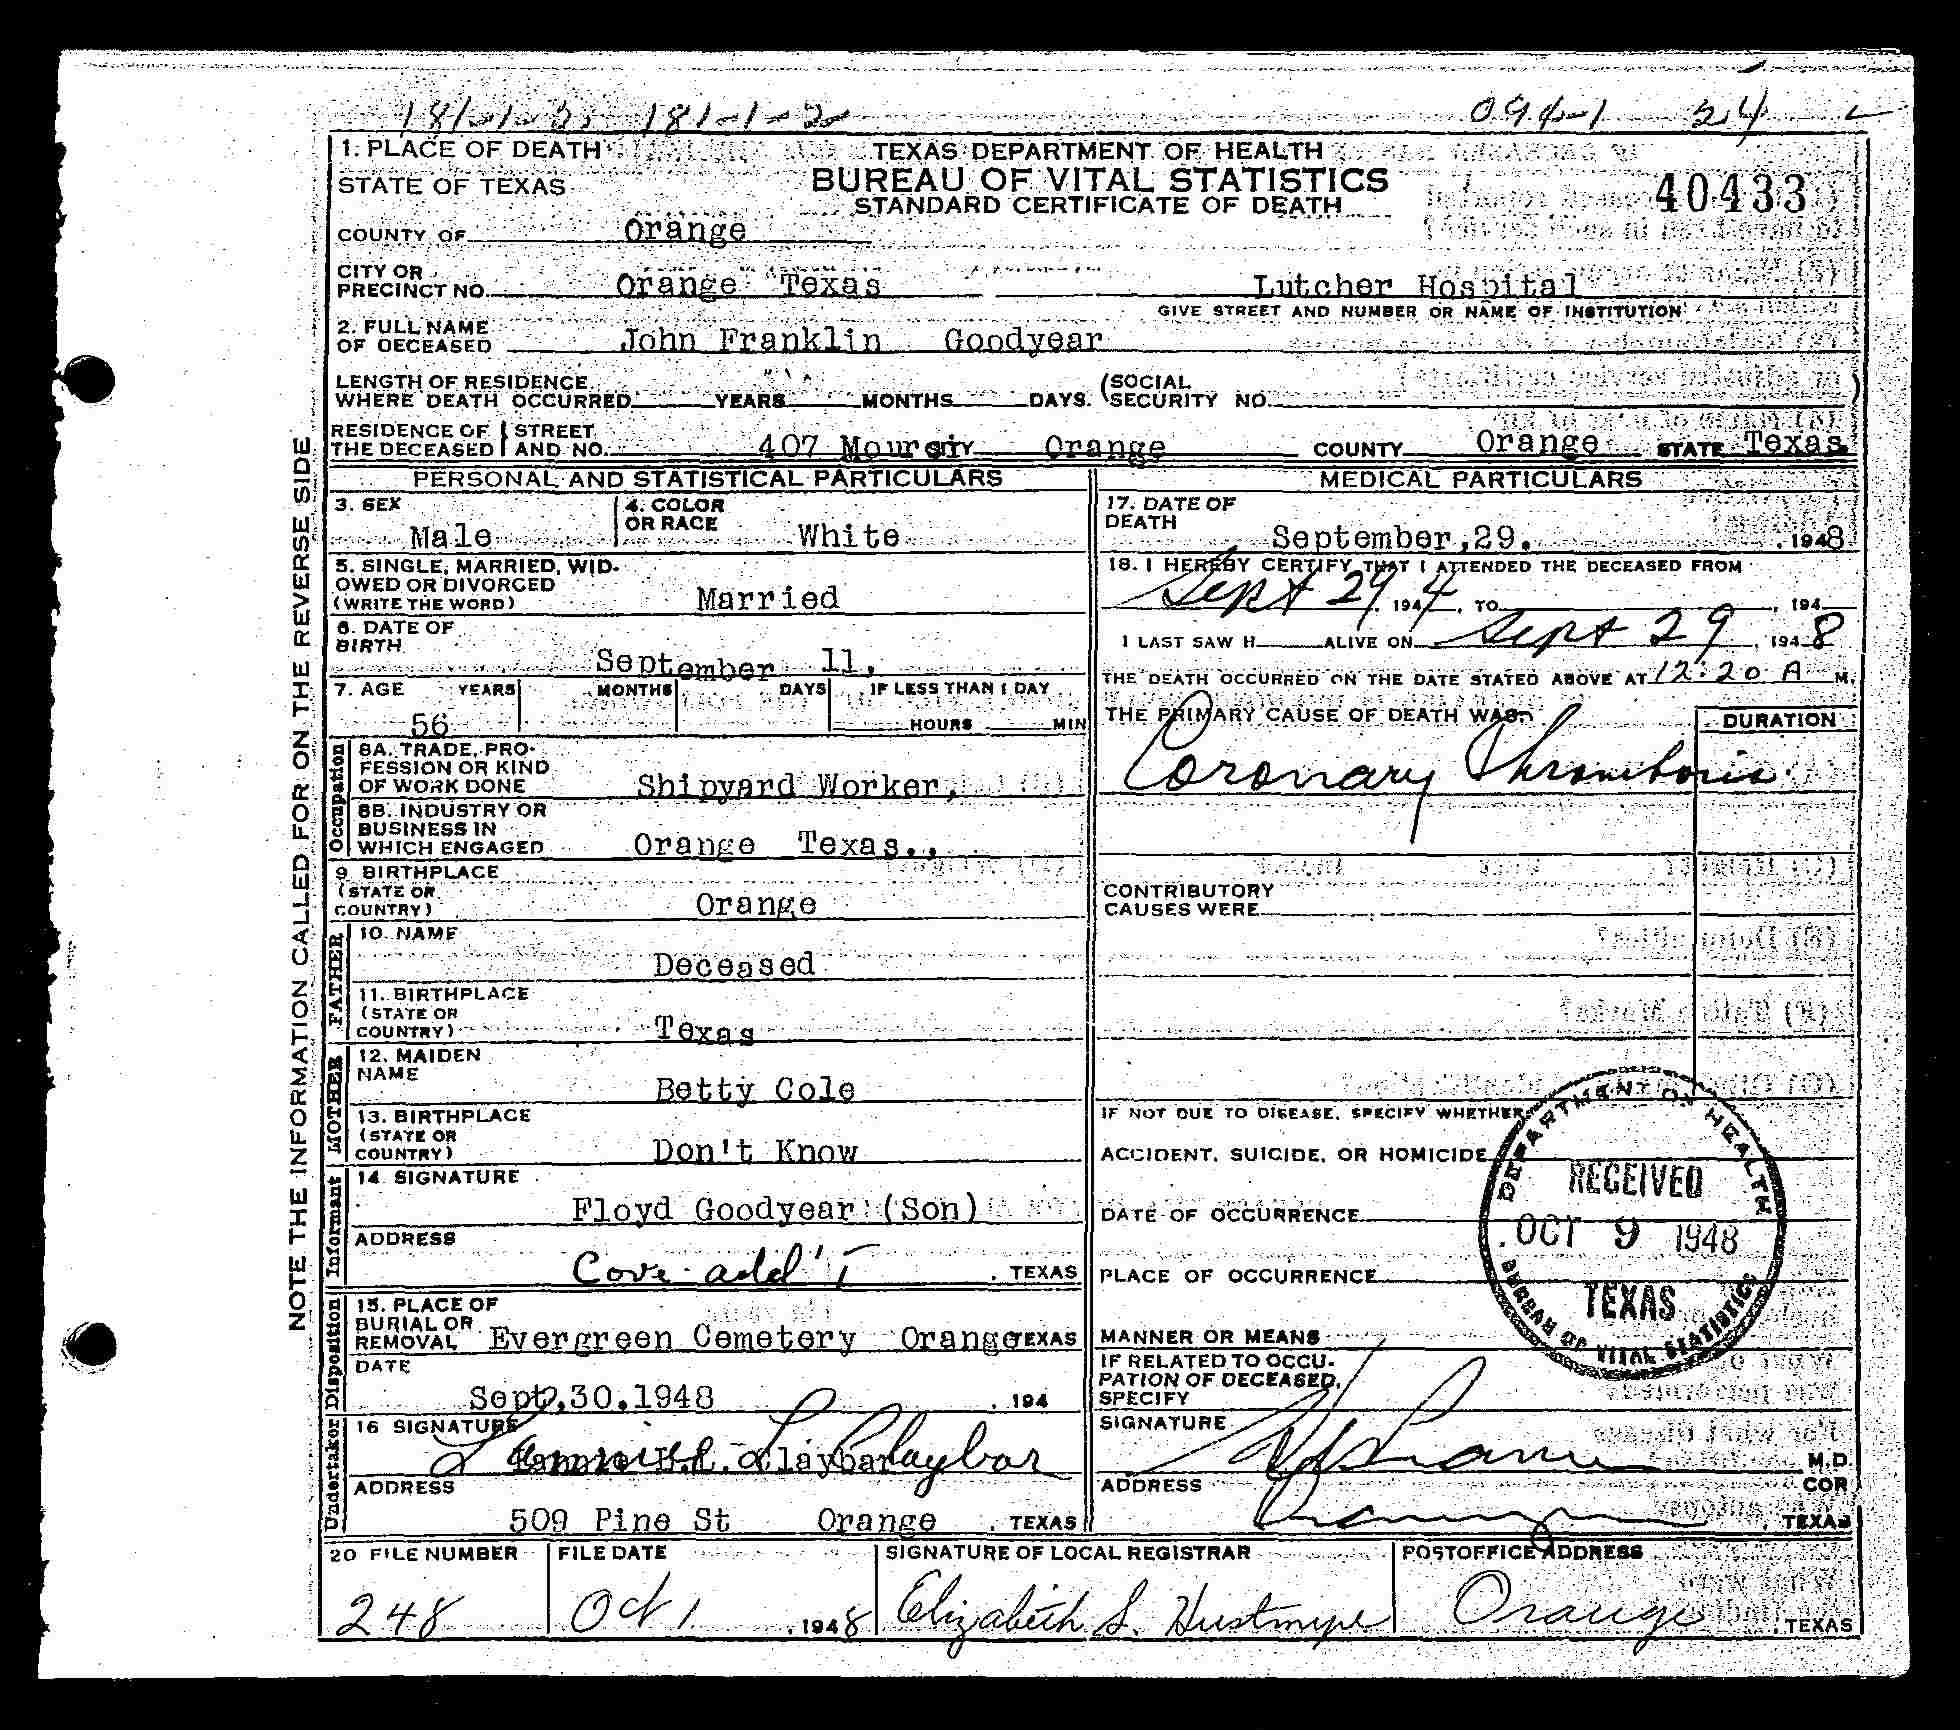 181-1-2 181-1-2 094-1 24
1. PLACE OF DEATH
STATE OF TEXAS
TEXAS DEPARTMENT OF HEALTH
BUREAU OF VITAL STATISTICS
STANDARD CERTIFICATE OF DEATH
40433
COUNTY OF Orange
CITY OR PRECINCT NO. Orange Texas Lutcher Hospital
GIVE STREET AND NUMBER OR NAME OF INSTITUTION
2. FULL NAME OF DECEASED John Franklin Goodyear
LENGTH OF RESIDENCE WHERE DEATH OCCURRED YEARS MONTHS DAYS. (SOCIAL SECURITY NO. )
RESIDENCE OF THE DECEASED STREET AND NO. 407 CITY Orange COUNTY Orange STATE Texas
NOTE THE INFORMATION CALLED FOR ON THE REVERSE SIDE
PERSONAL AND STATISTICAL PARTICULARS
3. SEX Male
4. COLOR OR RACE White
5. SINGLE, MARRIED, WIDOWED OR DIVORCED
(WRITE THE WORD) Married
6. DATE OF BIRTH September 11,
7. AGE YEARS MONTHS DAYS IF LESS THAN 1 DAY
56 HOURS MIN
Occupation
8A. TRADE, PROFESSION OR KIND OF WORK DONE Shipyard Worker,
8B. INDUSTRY OR BUSINESS IN WHICH ENGAGED Orange Texas.,
9 BIRTHPLACE (STATE OR COUNTRY) Orange
FATHER
10. NAME Deceased
11. BIRTHPLACE (STATE OR COUNTRY) Texas
MOTHER
12. MAIDEN NAME Betty Cole
13. BIRTHPLACE (STATE OR COUNTRY) Don't Know
Informant
14 SIGNATURE Floyd Goodyear (Son)
ADDRESS Cove add'T . TEXAS
Disposition
15. PLACE OF BURIAL OR REMOVAL Evergreen Cemetery Orange TEXAS
DATE Sept,30.1948 , 194
Undertaker
16 SIGNATURE Claybar
ADDRESS 509 Pine St Orange , TEXAS
MEDICAL PARTICULARS
17. DATE OF DEATH September,29. , 1948
18. I HEREBY CERTIFY THAT I ATTENDED THE DECEASED FROM
Sept 29, 194 , TO , 194
I LAST SAW H ALIVE ON Sept 29 , 1948
THE DEATH OCCURRED ON THE DATE STATED ABOVE AT 12:20 A M.
THE PRIMARY CAUSE OF DEATH WAS: DURATION
Coronary Thrombosis
CONTRIBUTORY CAUSES WERE
IF NOT DUE TO DISEASE, SPECIFY WHETHER
ACCIDENT, SUICIDE, OR HOMICIDE
DATE OF OCCURRENCE
PLACE OF OCCURRENCE
MANNER OR MEANS
IF RELATED TO OCCUPATION OF DECEASED, SPECIFY
DEPARTMENT OF HEALTH
RECEIVED
OCT 9 1948
TEXAS
BUREAU OF VITAL STATISTICS
SIGNATURE M.D.
COR
ADDRESS Orange , TEXAS
20 FILE NUMBER FILE DATE SIGNATURE OF LOCAL REGISTRAR POSTOFFICE ADDRESS
248 Oct 1 , 1948 Elizabeth S. Hustmyre Orange , TEXAS